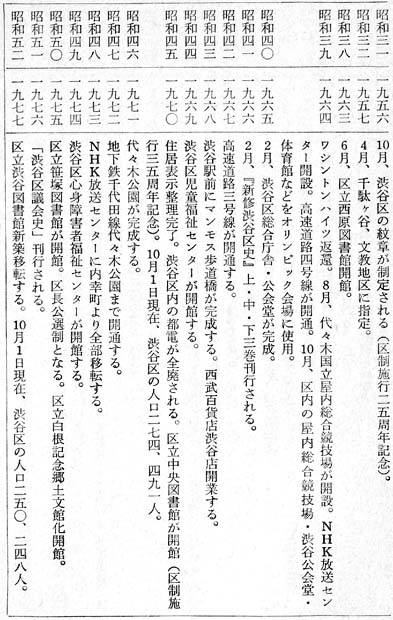 昭和三一 一九五六 10月、渋谷区の紋章が制定される（区制施行二五周年記念）。
昭和三二 一九五七 4月、千駄ヶ谷、文教地区に指定。
昭和三八 一九六三 6月、区立西原図書館開館。
昭和三九 一九六四 ワシントンハイツ返還。8月、代々木国立屋内総合競技場が開設。NHK放送セン
ター開設。高速道路四号線が開通。10月、区内の屋内総合競技場・渋谷公会堂・
体育館などをオリンピック会場に使用。
昭和四〇 一九六五 2月、渋谷区総合庁舎・公会堂が完成。
昭和四一 一九六六 2月、『新修渋谷区史』上・中・下三巻刊行される。
昭和四二 一九六七 高速道路三号線が開通する。
昭和四三 一九六八 渋谷駅前にマンモス歩道橋が完成する。西武百貨店渋谷店開業する。
昭和四四 一九六九 渋谷区児童福祉センターが開館する。
昭和四五 一九七〇 住居表示整理完了。渋谷区内の都電が全廃される。区立中央図書館が開館（区制施
行三五周年記念）。10月1日現在、渋谷区の人口二七四、四九一人。
昭和四六 一九七一 代々木公園が完成する。
昭和四七 一九七二 地下鉄千代田線代々木公園まで開通する。
昭和四八 一九七三 NHK放送センターに内幸町より全部移転する。
昭和四九 一九七四 渋谷区心身障害者福祉センターが開館する。
昭和五〇 一九七五 区立笹塚図書館が開館。区長公選制となる。区立白根記念郷土文館化開館。
昭和五一 一九七六 「渋谷区議会史」刊行される。
昭和五二 一九七七 区立渋谷図書館新築移転する。10月1日現在、渋谷区の人口二五〇、二四八人。